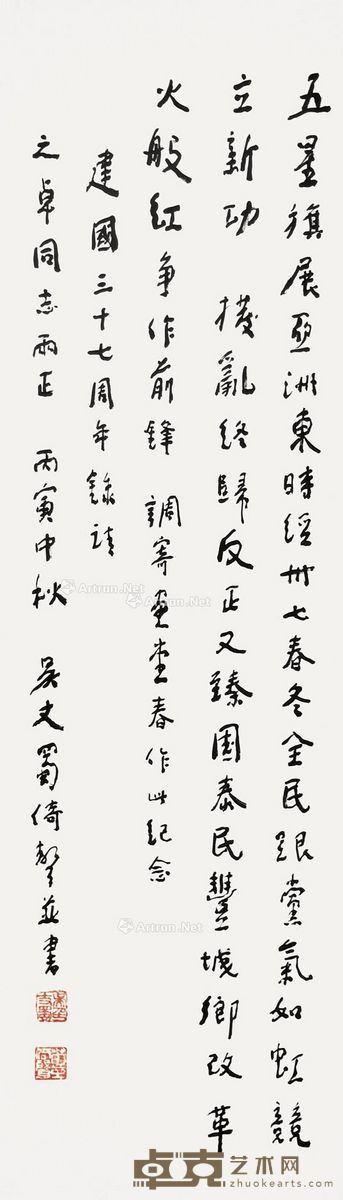 五星旗展亞洲東時經卅七春冬全民跟黨氣如虹競
立新功 撥亂終歸反正又臻國泰民豐城鄉改革
火般紅争作前鋒 調寄畫堂春作此紀念
建國三十七周年録請
之卓同志兩正 丙寅中秋 吳丈蜀倚聲並書
Artron.Net
Artron.Net
Artron.Net
Artron.Net
卓克艺术网
zhuokearts.com